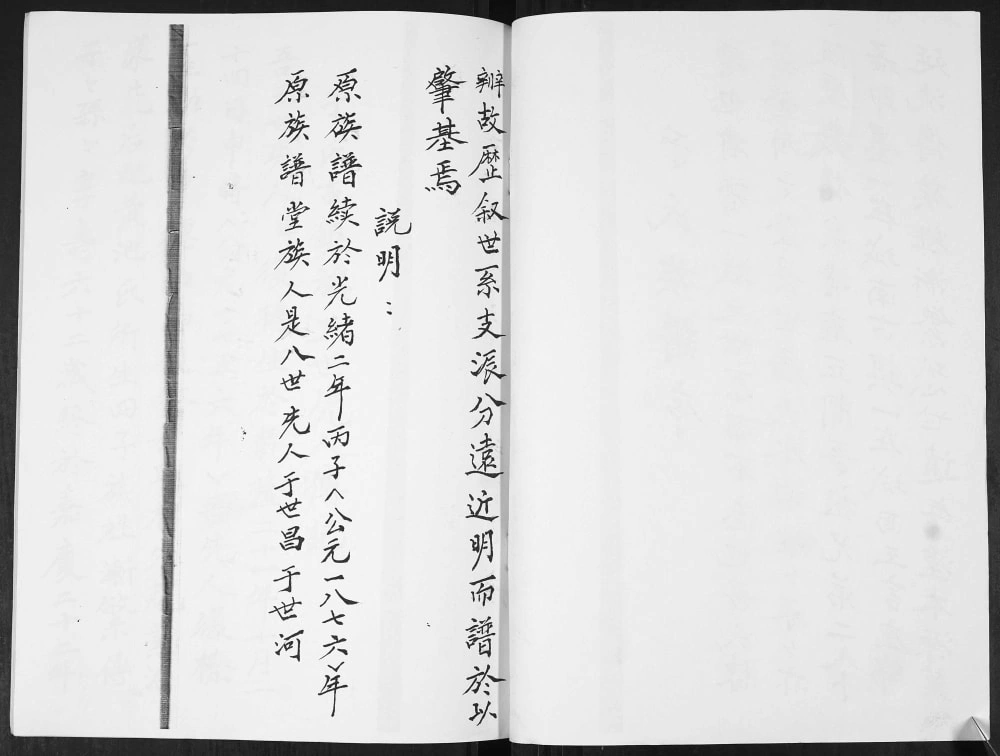 辦故歷叙世系支派分遠近明而譜於以
肇基焉
説明：
原族譜續於光緒二年丙子〈公元一八七六〉年
原族譜堂族人是八世先人于世昌于世河